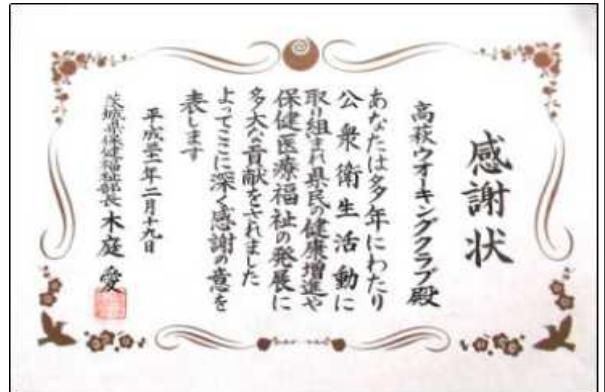 感謝状
高萩ウオーキングクラブ殿
あなたは多年にわたり
公衆衛生活動に
取り組まれ県民の健康増進や
保健医療福祉の発展に
多大な貢献をされました
よってここに深く感謝の意を
表します
平成三十一年二月十九日
茨城県保健福祉部長 木庭 愛